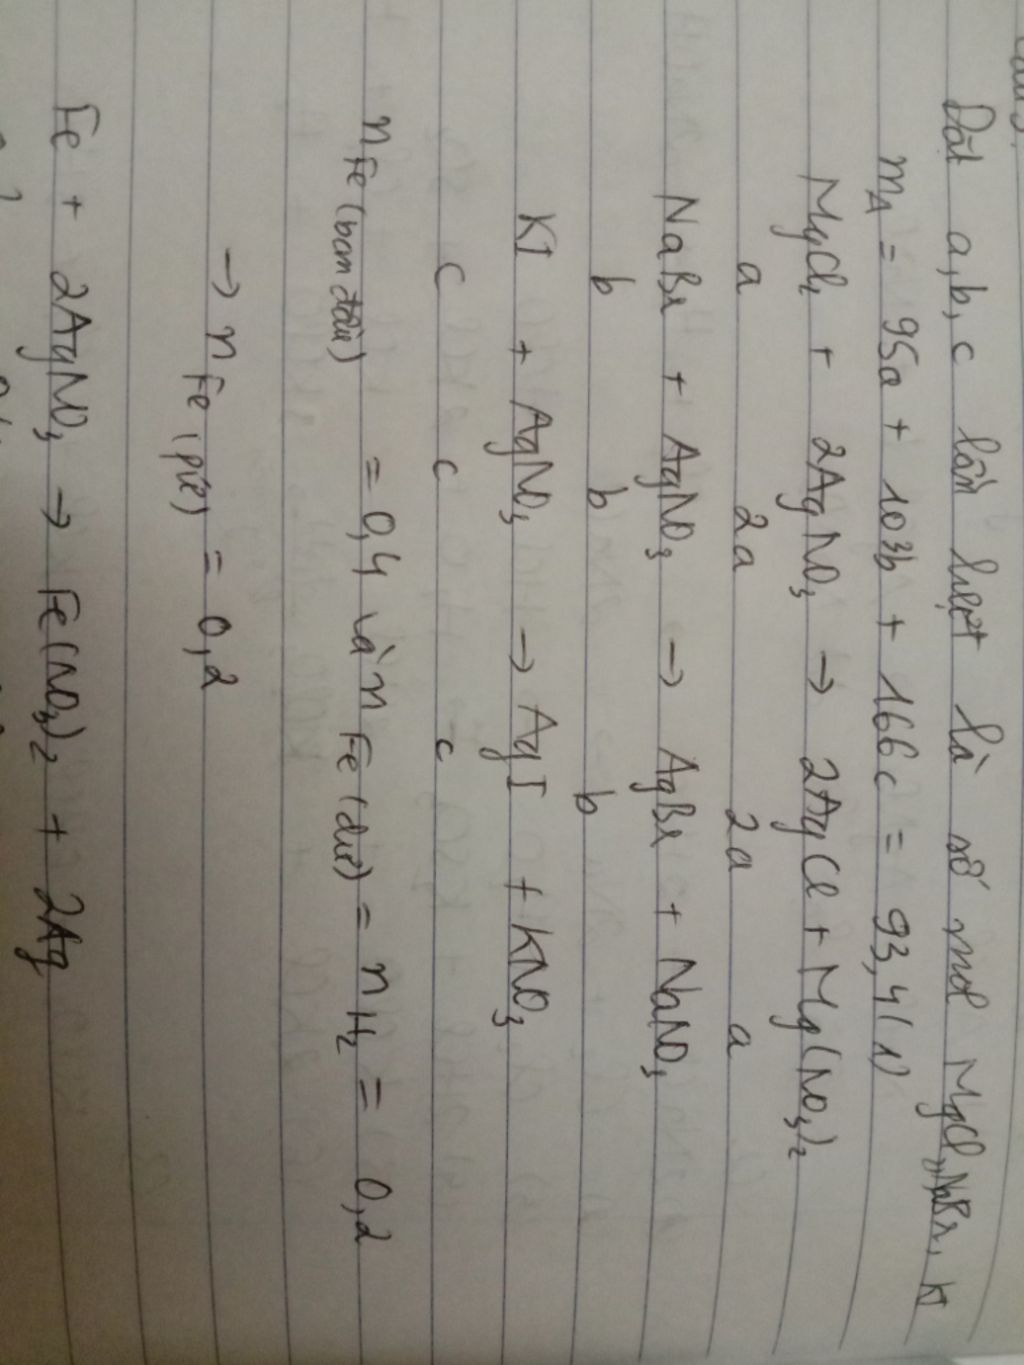 Đặt a, b, c lần lượt là số mol MgCl₂, NaBr, KI
m_A = 95a + 103b + 166c = 93,4 (1)
MgCl₂ + 2AgNO₃ → 2AgCl + Mg(NO₃)₂
a 2a 2a a
NaBr + AgNO₃ → AgBr + NaNO₃
b b b
KI + AgNO₃ → AgI + KNO₃
c c c
n Fe (ban đầu) = 0,4 và n Fe (dư) = n H₂ = 0,2
→ n Fe (pứ) = 0,2
Fe + 2AgNO₃ → Fe(NO₃)₂ + 2Ag